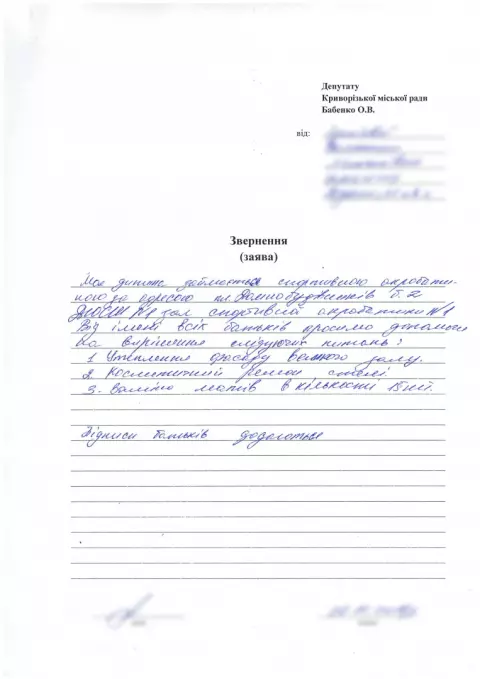 Депутату
Криворізької міської ради
Бабенко О.В.
від:
Звернення
(заява)
Моя дитина займається спортивною акробати-
кою за адресою пл. Домнобудівників б. 2
ДЮСШ №1 зал спортивної акробатики №1
Від імені всіх батьків просимо допомоги
на вирішення слідуючих питань:
1 Утеплення фасаду великого залу.
2. Косметичний ремонт стелі.
3. Заміна матів в кількості 15 шт.
Підписи батьків додаються